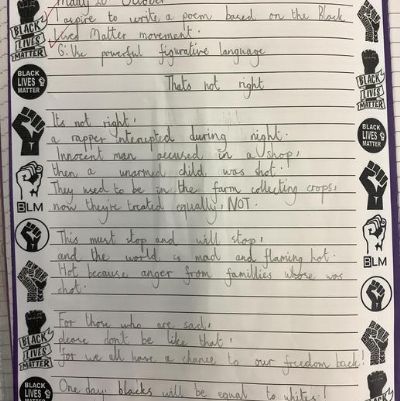 October
I aspire to write a poem based on the Black
Lived Matter movement.
G: Use powerful figurative language
Thats not right
Its not right,
a rapper interupted during night.
Innocent man accused in a shop,
then a unarmed child, was shot.
They used to be in the farm collecting crops,
now they're treated equally, NOT.
This must stop and will stop,
and the world is mad and flaming hot.
Hot because anger from famillies whose was
shot.
For those who are said,
please don't be like that,
for we all have a chance to our freedom back!
One day blacks will be equal to whites!
BLACK
LIVES
MATTER
BLACK
LIVES
MATTER
BLM
BLACK
LIVES
MATTER
BLACK
LIVES
MATTER
BLACK
LIVES
MATTER
BLACK
LIVES
MATTER
BLM